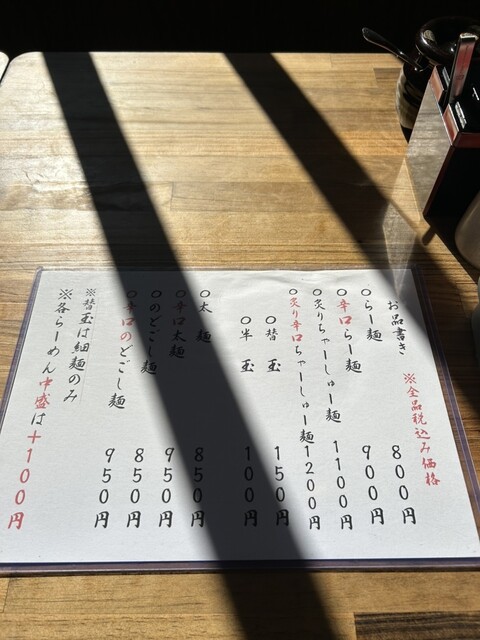 お品書き
※全品税込み価格
○らー麺 800円
○辛口らー麺 900円
○炙りちゃーしゅー麺 1100円
○炙り辛口ちゃーしゅー麺 1200円
○替玉 150円
○半玉 100円
○太麺 850円
○辛口太麺 950円
○のどごし麺 850円
○辛口のどごし麺 950円
※替玉は細麺のみ
※各らーめん中盛は+100円